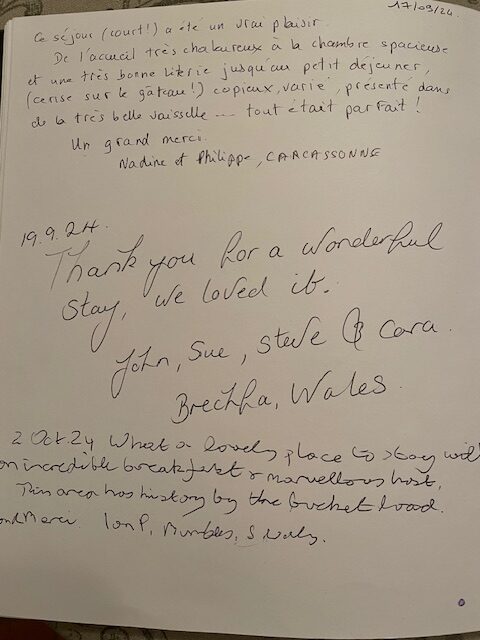 17/09/24.
Ce séjour (court!) a été un vrai plaisir.
De l'accueil très chaleureux à la chambre spacieuse
et une très bonne literie jusqu'au petit déjeuner,
(cerise sur le gâteau!) copieux, varié, présenté dans
de la très belle vaisselle... tout était parfait!
Un grand merci.
Nadine et Philippe, CARCASSONNE
19.9.24.
Thank you for a wonderful
stay, we loved it.
John, Sue, Steve & Cara.
Brechfa, Wales.
2 Oct.24 What a lovely place to stay with
an incredible breakfast & marvellous host.
This area has history by the bucket load.
Merci. Ian P, Mumbles, S Wales.